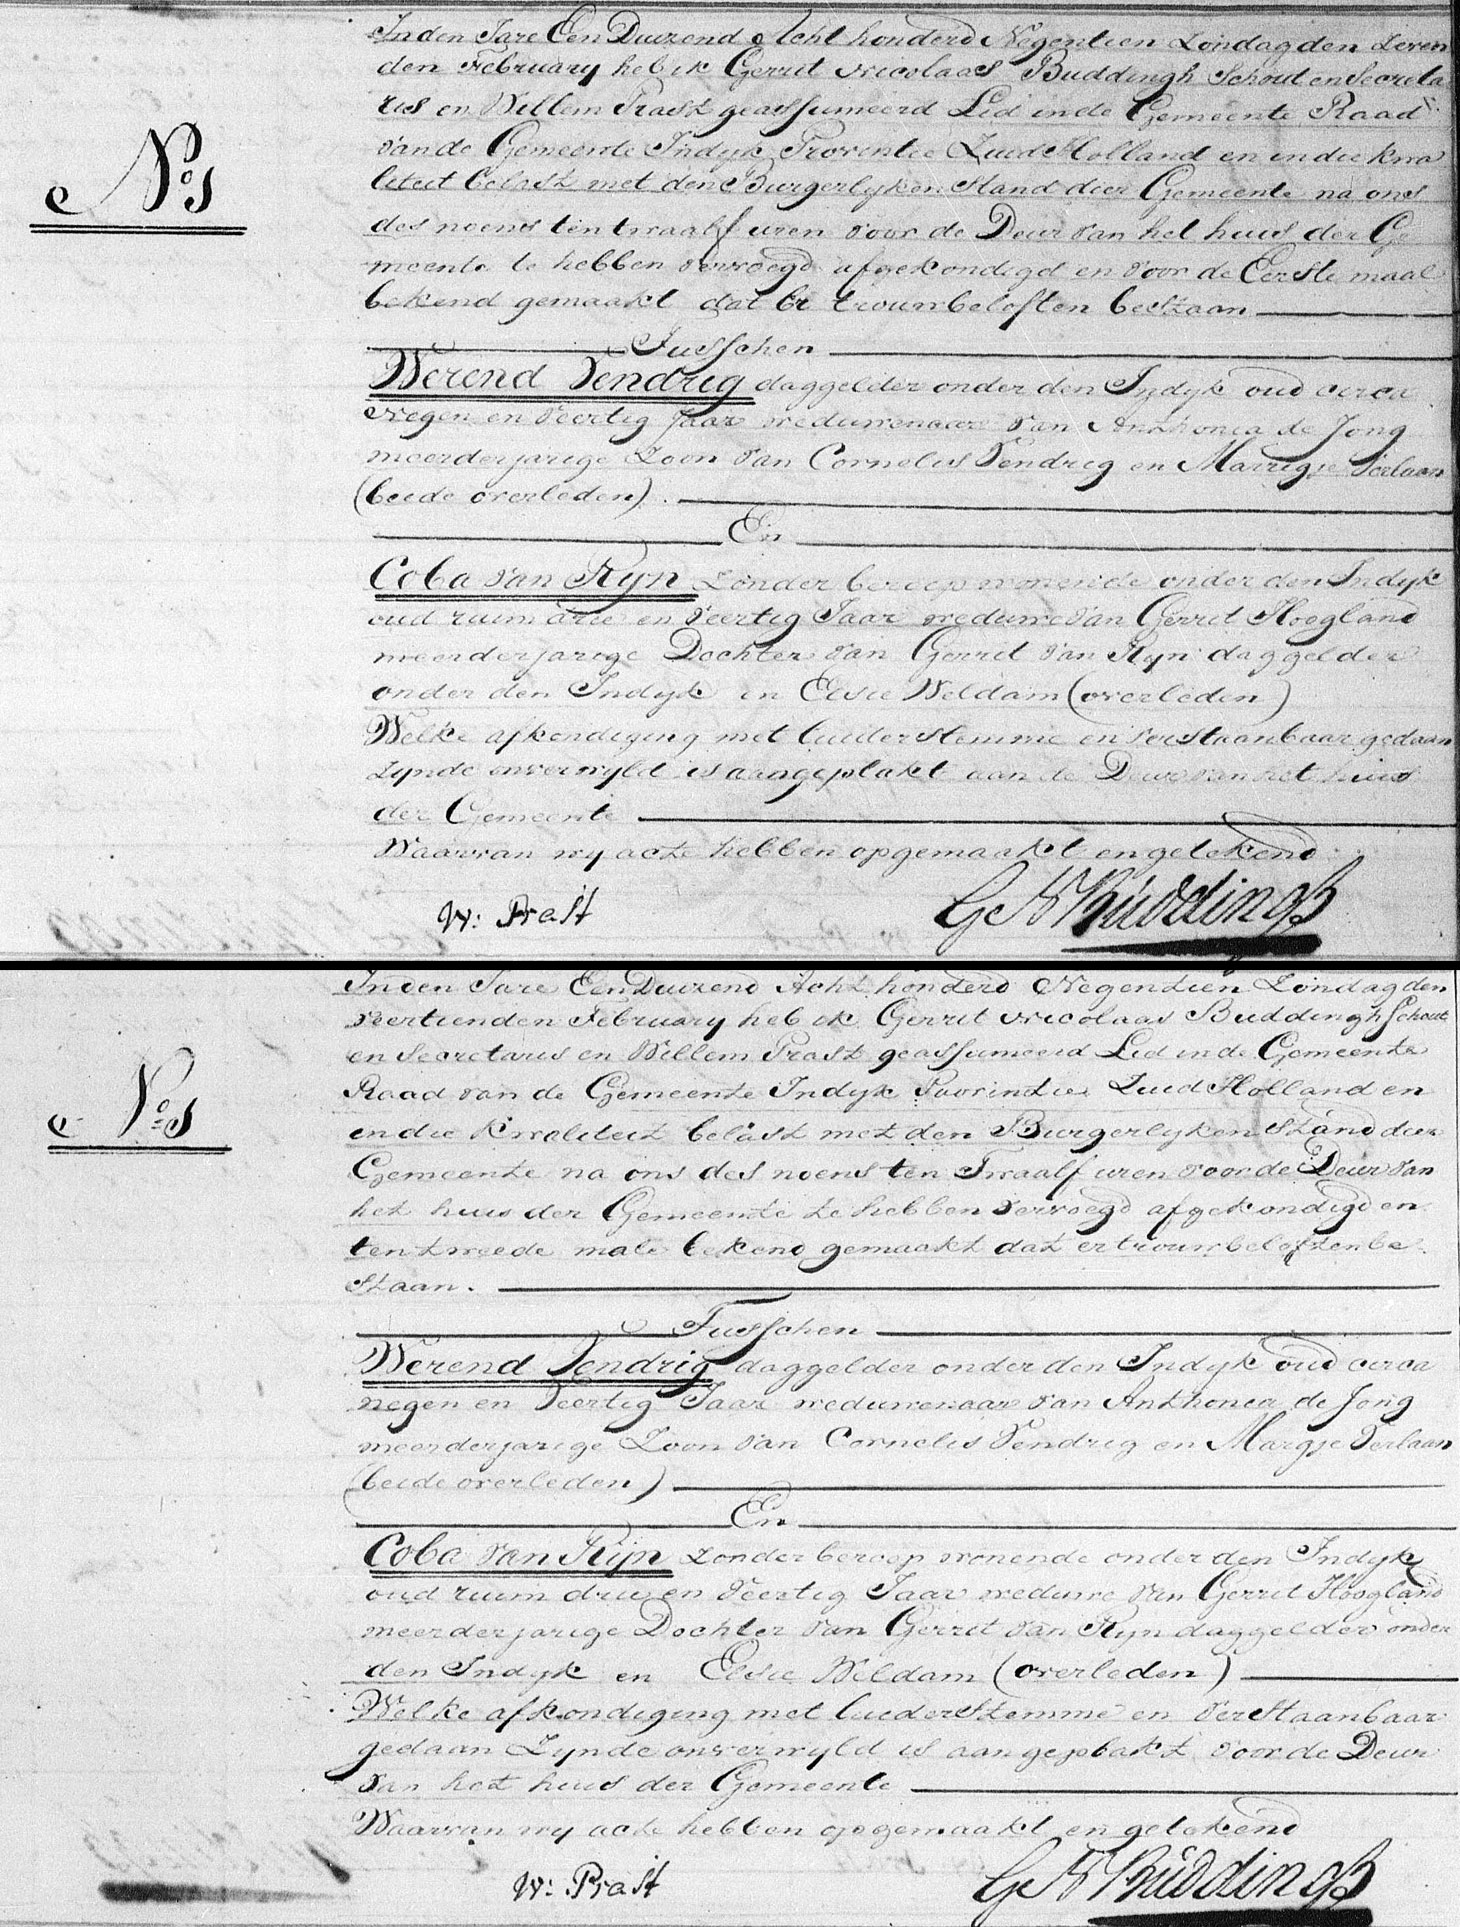 In den Jare Een Duizend Acht honderd Negentien Zondag den Zeven
den February heb ik Gerrit Nicolaas Buddingh Schout en Secreta
ris en Willem Prast geassumeerd Lid in de Gemeente Raad
van de Gemeente Indyk Provintie Zuid Holland en in die kwa
liteit belast met den Burgerlyken Stand dier Gemeente na ons
des noens ten twaalf uren voor de Deur van het huis der Ge
meente te hebben vervoegd afgekondigd en voor de Eerste maal
bekend gemaakt dat er trouwbeloften bestaan
No 1
Tusschen
Werend Vendrig daggelder onder den Indyk oud circa
negen en veertig Jaar weduwenaar van Anthonia de Jong
meerderjarige Zoon van Cornelis Vendrig en Marrigje Verlaan
(beide overleden).
En
Coba van Ryn Zonder beroep wonende onder den Indyk
oud ruim drie en veertig Jaar weduwe van Gerrit Hoogland
meerderjarige Dochter van Gerrit van Ryn daggelder
onder den Indyk en Elsie Weldam (overleden)
Welke afkondiging met luider stemme en verstaanbaar gedaan
Zynde onverwyld is aangeplakt aan de Deur van het huis
der Gemeente
Waarvan wy acte hebben opgemaakt en getekend
W: Prast G N Buddingh
In den Jare Een Duizend Acht honderd Negentien Zondag den
veertienden February heb ik Gerrit Nicolaas Buddingh Schout
en Secretaris en Willem Prast geassumeerd Lid in de Gemeente
Raad van de Gemeente Indyk Provintie Zuid Holland en
in die kwaliteit belast met den Burgerlyken Stand dier
No 1
Gemeente na ons des noens ten Twaalf uren voor de Deur van
het huis der Gemeente te hebben vervoegd afgekondigd en
ten tweede male bekend gemaakt dat er trouwbeloften be
staan.
Tusschen
Werend Vendrig daggelder onder den Indyk oud circa
negen en veertig Jaar weduwenaar van Anthonia de Jong
meerderjarige Zoon van Cornelis Vendrig en Margje Verlaan
(beide overleden)
En
Coba van Ryn Zonder beroep wonende onder den Indyk
oud ruim drie en veertig Jaar weduwe van Gerrit Hoogland
meerderjarige Dochter van Gerrit van Ryn daggelder onder
den Indyk en Elsie Wildam (overleden)
Welke afkondiging met luider Stemme en verstaanbaar
gedaan Zynde onverwyld is aangeplakt voor de Deur
van het huis der Gemeente
Waarvan wy acte hebben opgemaakt en getekend
W: Prast G N Buddingh